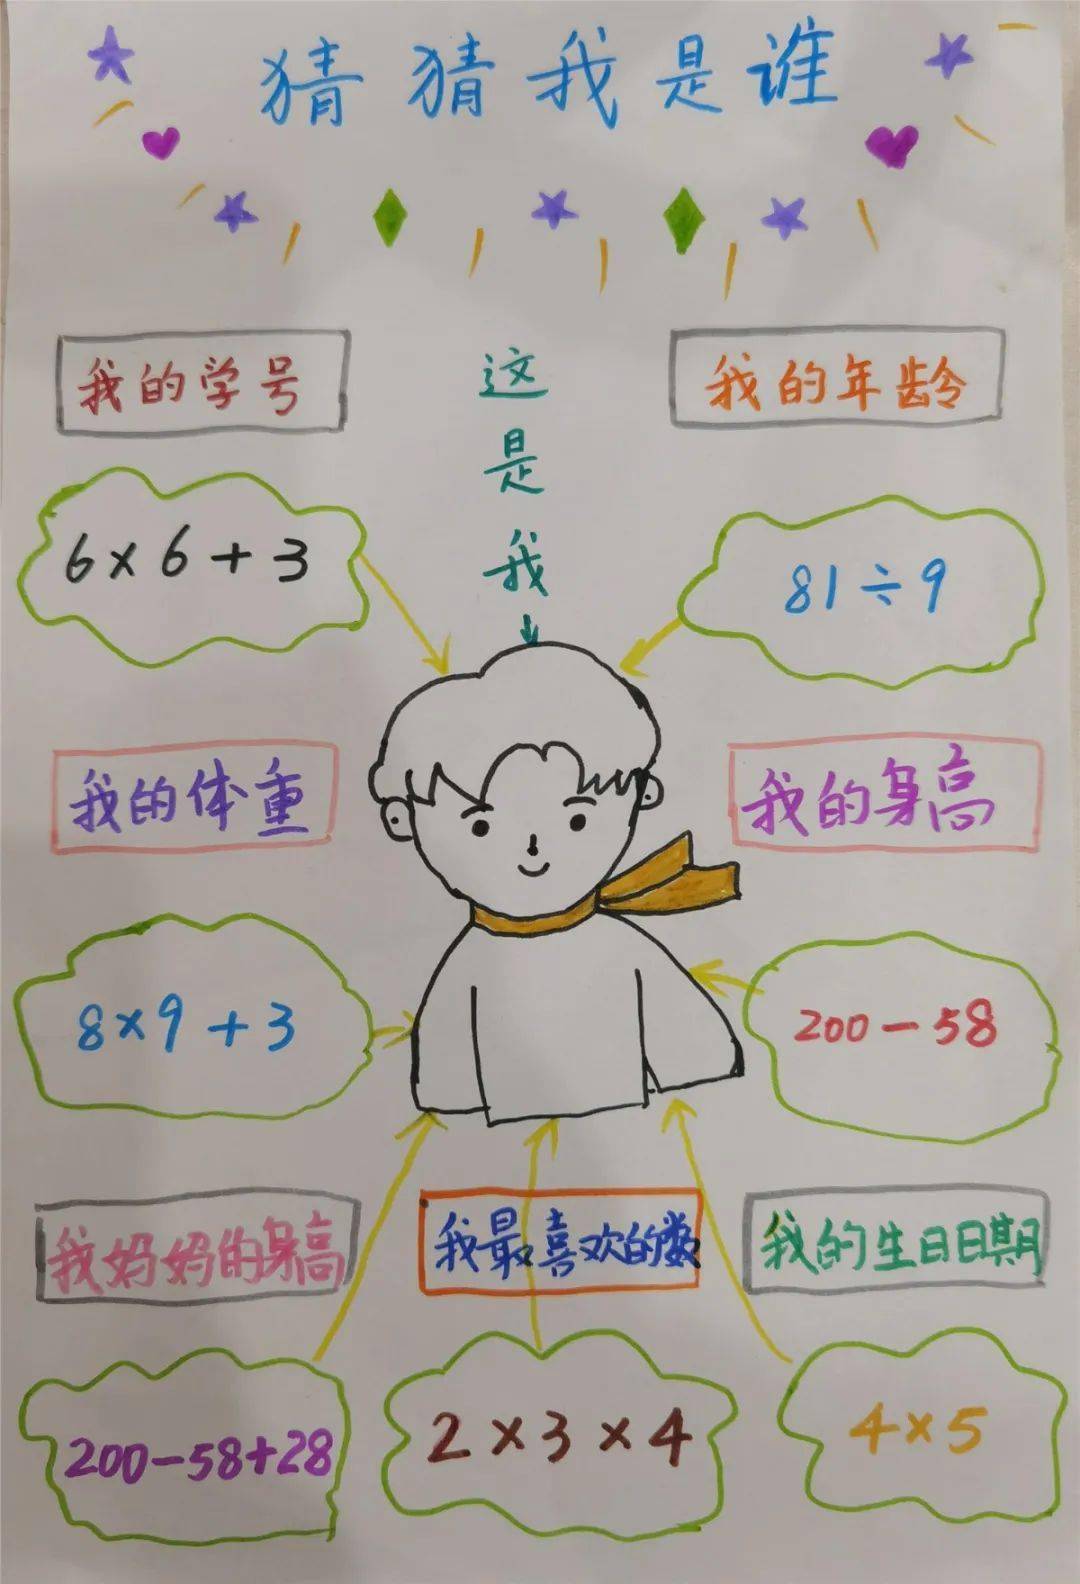 猜猜我是谁
我的学号
这是我
我的年龄
6×6+3
81÷9
我的体重
我的身高
8×9+3
200-58
我妈妈的身高
我最喜欢的数
我的生日日期
200-58+28
2×3×4
4×5